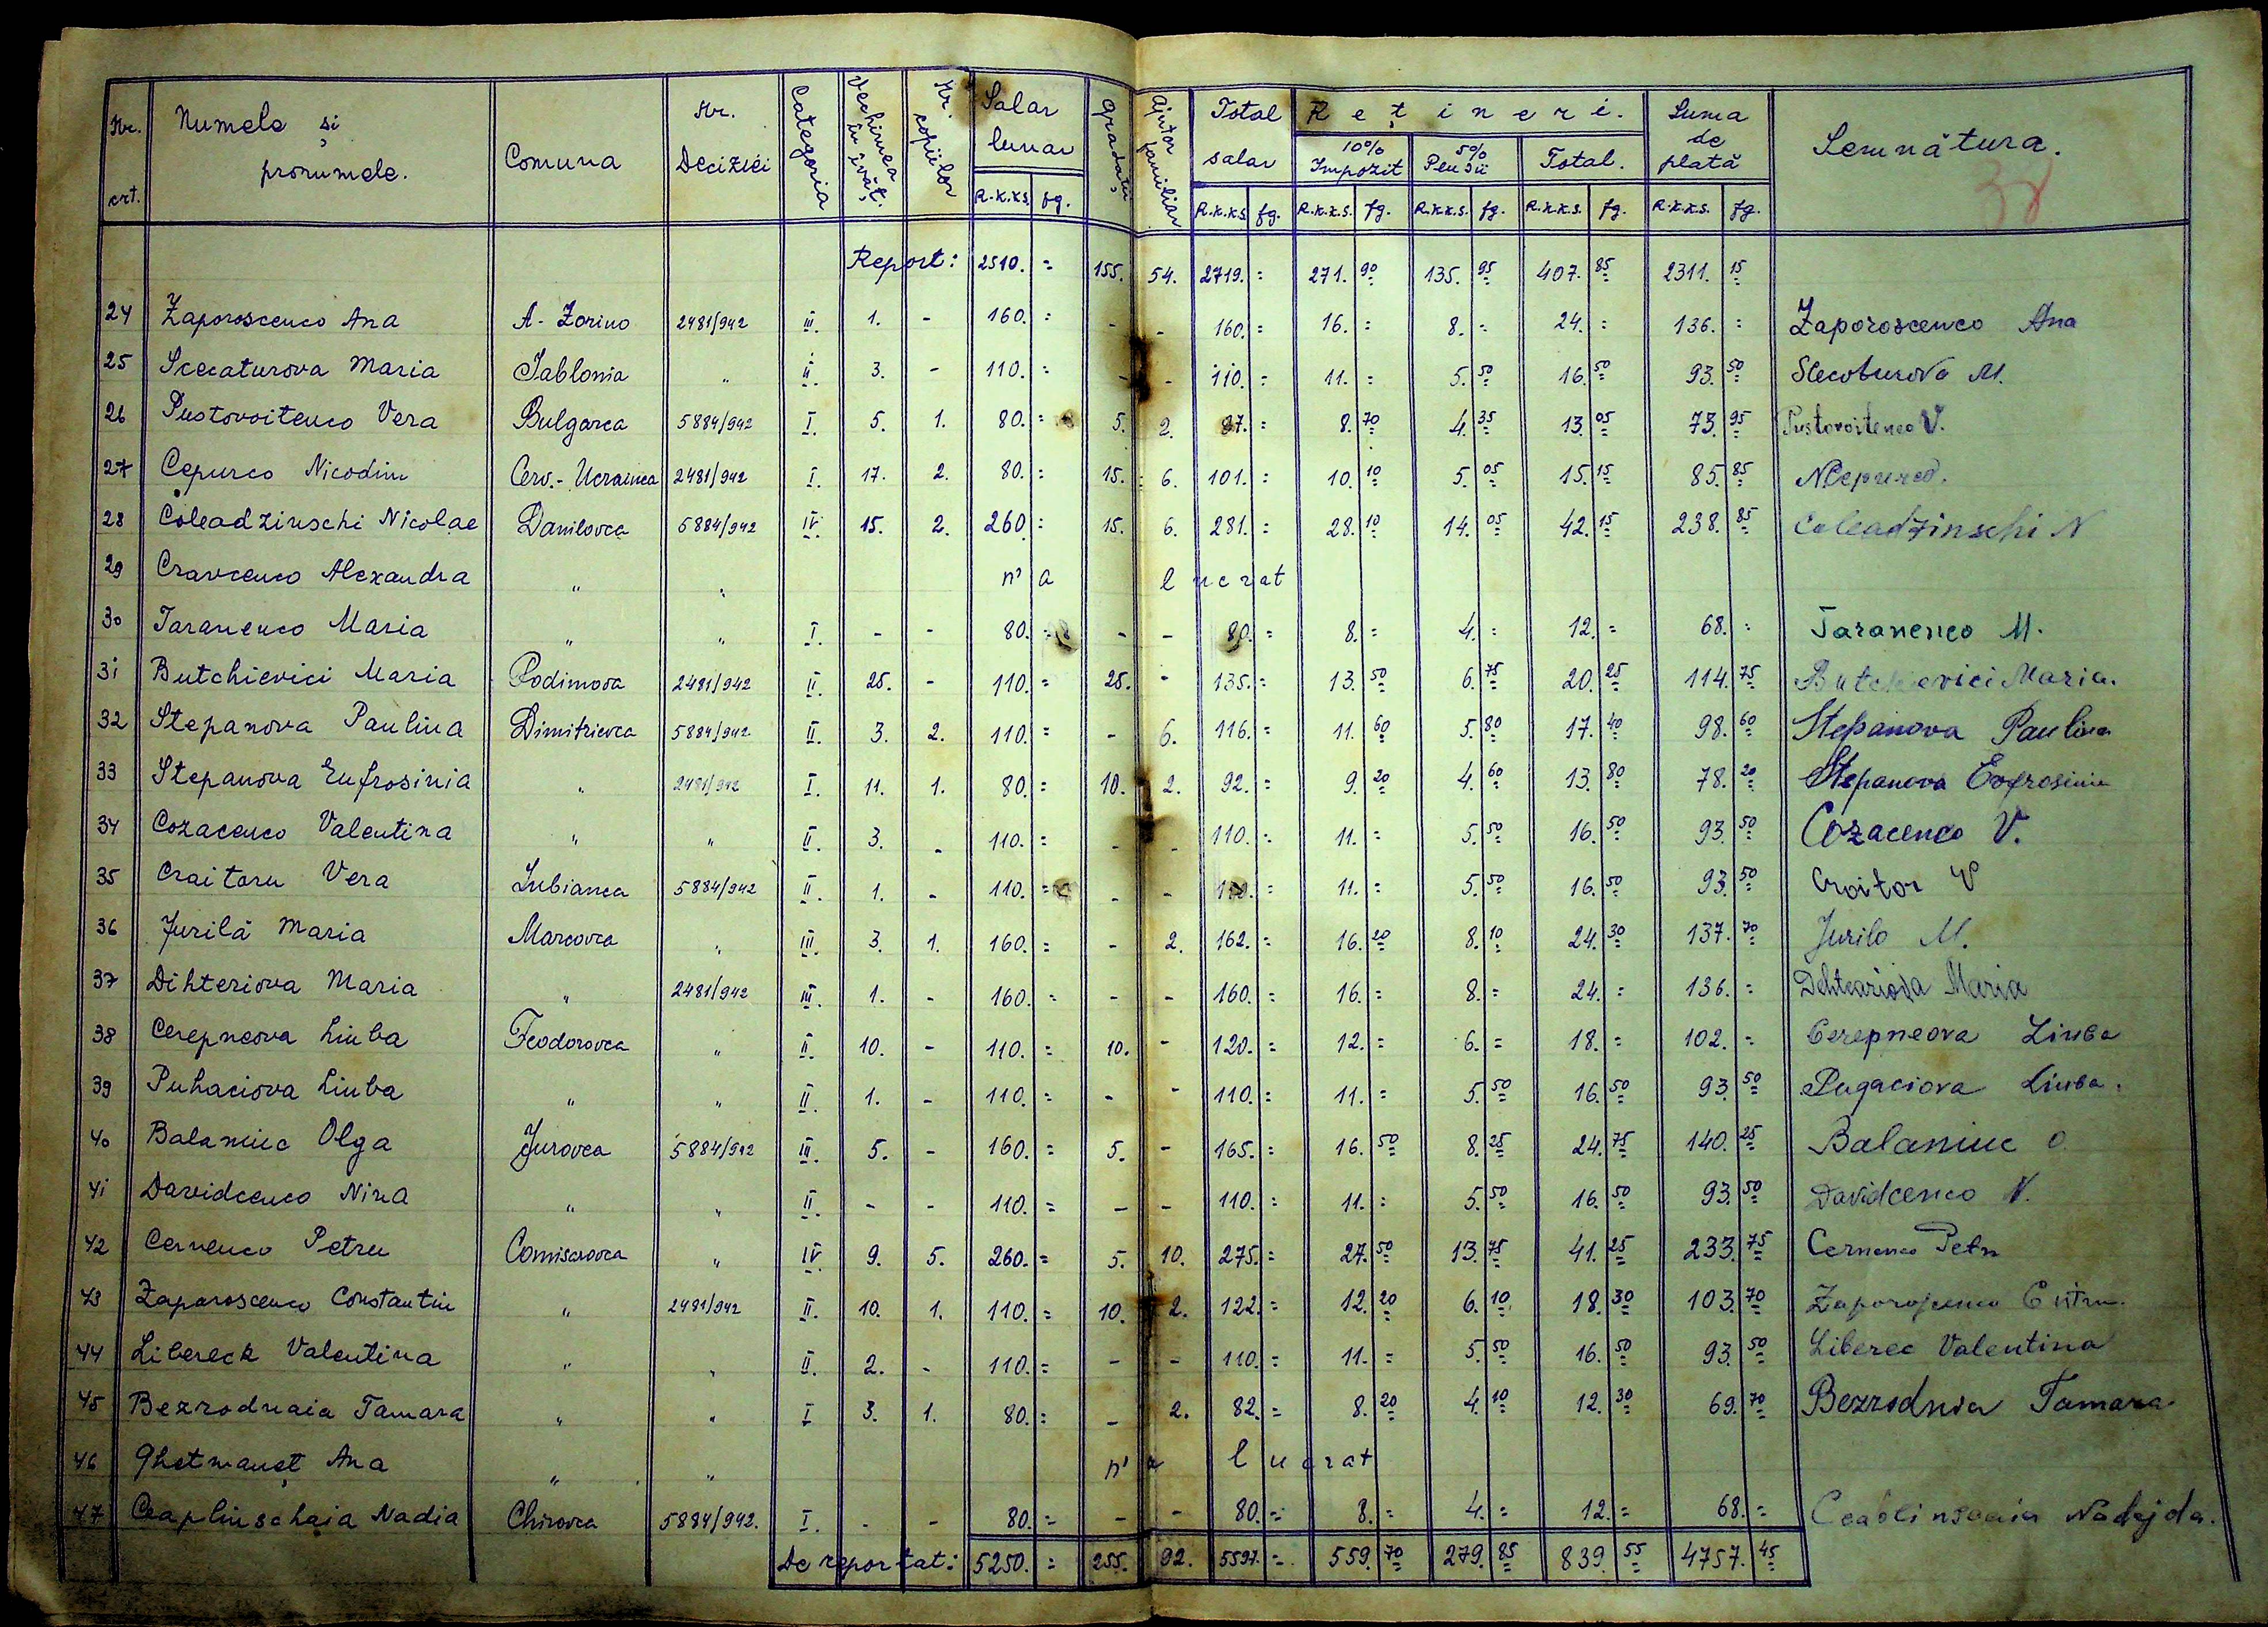 Nr. crt. Numele și pronumele. Comuna Nr. Deciziei Categoria Vechimea în învăț. Nr. copiilor Salar lunar Gradații Ajutor familiar Total salar Rețineri. Suma de plată Semnătura.
10% Impozit 5% Pensii Total. 38
R.k.k.s. fg. R.k.k.s. fg. R.k.k.s. fg. R.k.k.s. fg. R.k.k.s. fg. R.k.k.s. fg.
Report: 2510. = 155. 54. 2719. = 271. 90 135. 95 407. 85 2311. 15
24 Zaporoscenco Ana A-Zorino 2481/942 III. 1. - 160. = - - 160. = 16. = 8. = 24. = 136. = Zaporoscenco Ana
25 Scecaturova Maria Jablonia " II. 3. - 110. = - - 110. = 11. = 5. 50 16. 50 93. 50 Scecoturova M.
26 Pustovoitenco Vera Bulgarca 5884/942 I. 5. 1. 80. = 5. 2. 87. = 8. 70 4. 35 13. 05 73. 95 Pustovoitenco V.
27 Cepurco Nicodim Cerv.-Ucrainca 2481/942 I. 17. 2. 80. = 15. 6. 101. = 10. 10 5. 05 15. 15 85. 85 NCepurco.
28 Coleadzinschi Nicolae Danilovca 5884/942 IV. 15. 2. 260. = 15. 6. 281. = 28. 10 14. 05 42. 15 238. 85 Coleadzinschi N
29 Cravcenco Alexandra " " n'a lucrat
30 Taranenco Maria " " I. - - 80. = - - 80. = 8. = 4. = 12. = 68. = Taranenco M.
31 Butchievici Maria Podimova 2481/942 II. 25. - 110. = 25. - 135. = 13. 50 6. 75 20. 25 114. 75 Butchievici Maria.
32 Stepanova Paulina Dimitrievca 5884/942 II. 3. 2. 110. = - 6. 116. = 11. 60 5. 80 17. 40 98. 60 Stepanova Paulina
33 Stepanova Eufrosinia " 2481/942 I. 11. 1. 80. = 10. 2. 92. = 9. 20 4. 60 13. 80 78. 20 Stepanova Eofrosinia
34 Cozacenco Valentina " " II. 3. - 110. = - - 110. = 11. = 5. 50 16. 50 93. 50 Cozacenco V.
35 Craitoru Vera Lubianca 5884/942 II. 1. - 110. = - - 110. = 11. = 5. 50 16. 50 93. 50 Croitor V
36 Jurilă Maria Marcovca " III. 3. 1. 160. = - 2. 162. = 16. 20 8. 10 24. 30 137. 70 Jurilo M.
37 Dihteriova Maria " 2481/942 III. 1. - 160. = - - 160. = 16. = 8. = 24. = 136. = Dehteariova Maria
38 Cerepneova Liuba Feodorovca " II. 10. - 110. = 10. - 120. = 12. = 6. = 18. = 102. = Cerepneova Liuba
39 Puhaciova Liuba " " II. 1. - 110. = - - 110. = 11. = 5. 50 16. 50 93. 50 Pugaciova Liuba.
40 Balaniuc Olga Jurovca 5884/942 III. 5. - 160. = 5. - 165. = 16. 50 8. 25 24. 75 140. 25 Balaniuc O.
41 Davidcenco Nina " " II. - - 110. = - - 110. = 11. = 5. 50 16. 50 93. 50 Davidcenco N.
42 Cernenco Petru Comisarovca " IV. 9. 5. 260. = 5. 10. 275. = 27. 50 13. 75 41. 25 233. 75 Cernenco Petru
43 Zaporoscenco Constantin " 2481/942 II. 10. 1. 110. = 10. 2. 122. = 12. 20 6. 10 18. 30 103. 70 Zaporojenco
44 Libereck Valentina " " II. 2. - 110. = - - 110. = 11. = 5. 50 16. 50 93. 50 Liberec Valentina
45 Bezrodnaia Tamara " " I 3. 1. 80. = - 2. 82. = 8. 20 4. 10 12. 30 69. 70 Bezrodnia Tamara
46 Ghetmaneț Ana " " n'a lucrat
47 Ceaplinschaia Nadia Chirovca 5884/942. I. - - 80. = - - 80. = 8. = 4. = 12. = 68. = Ceablinscaia Nadejda.
De reportat: 5250. = 255. 92. 5597. = 559. 70 279. 85 839. 55 4757. 45